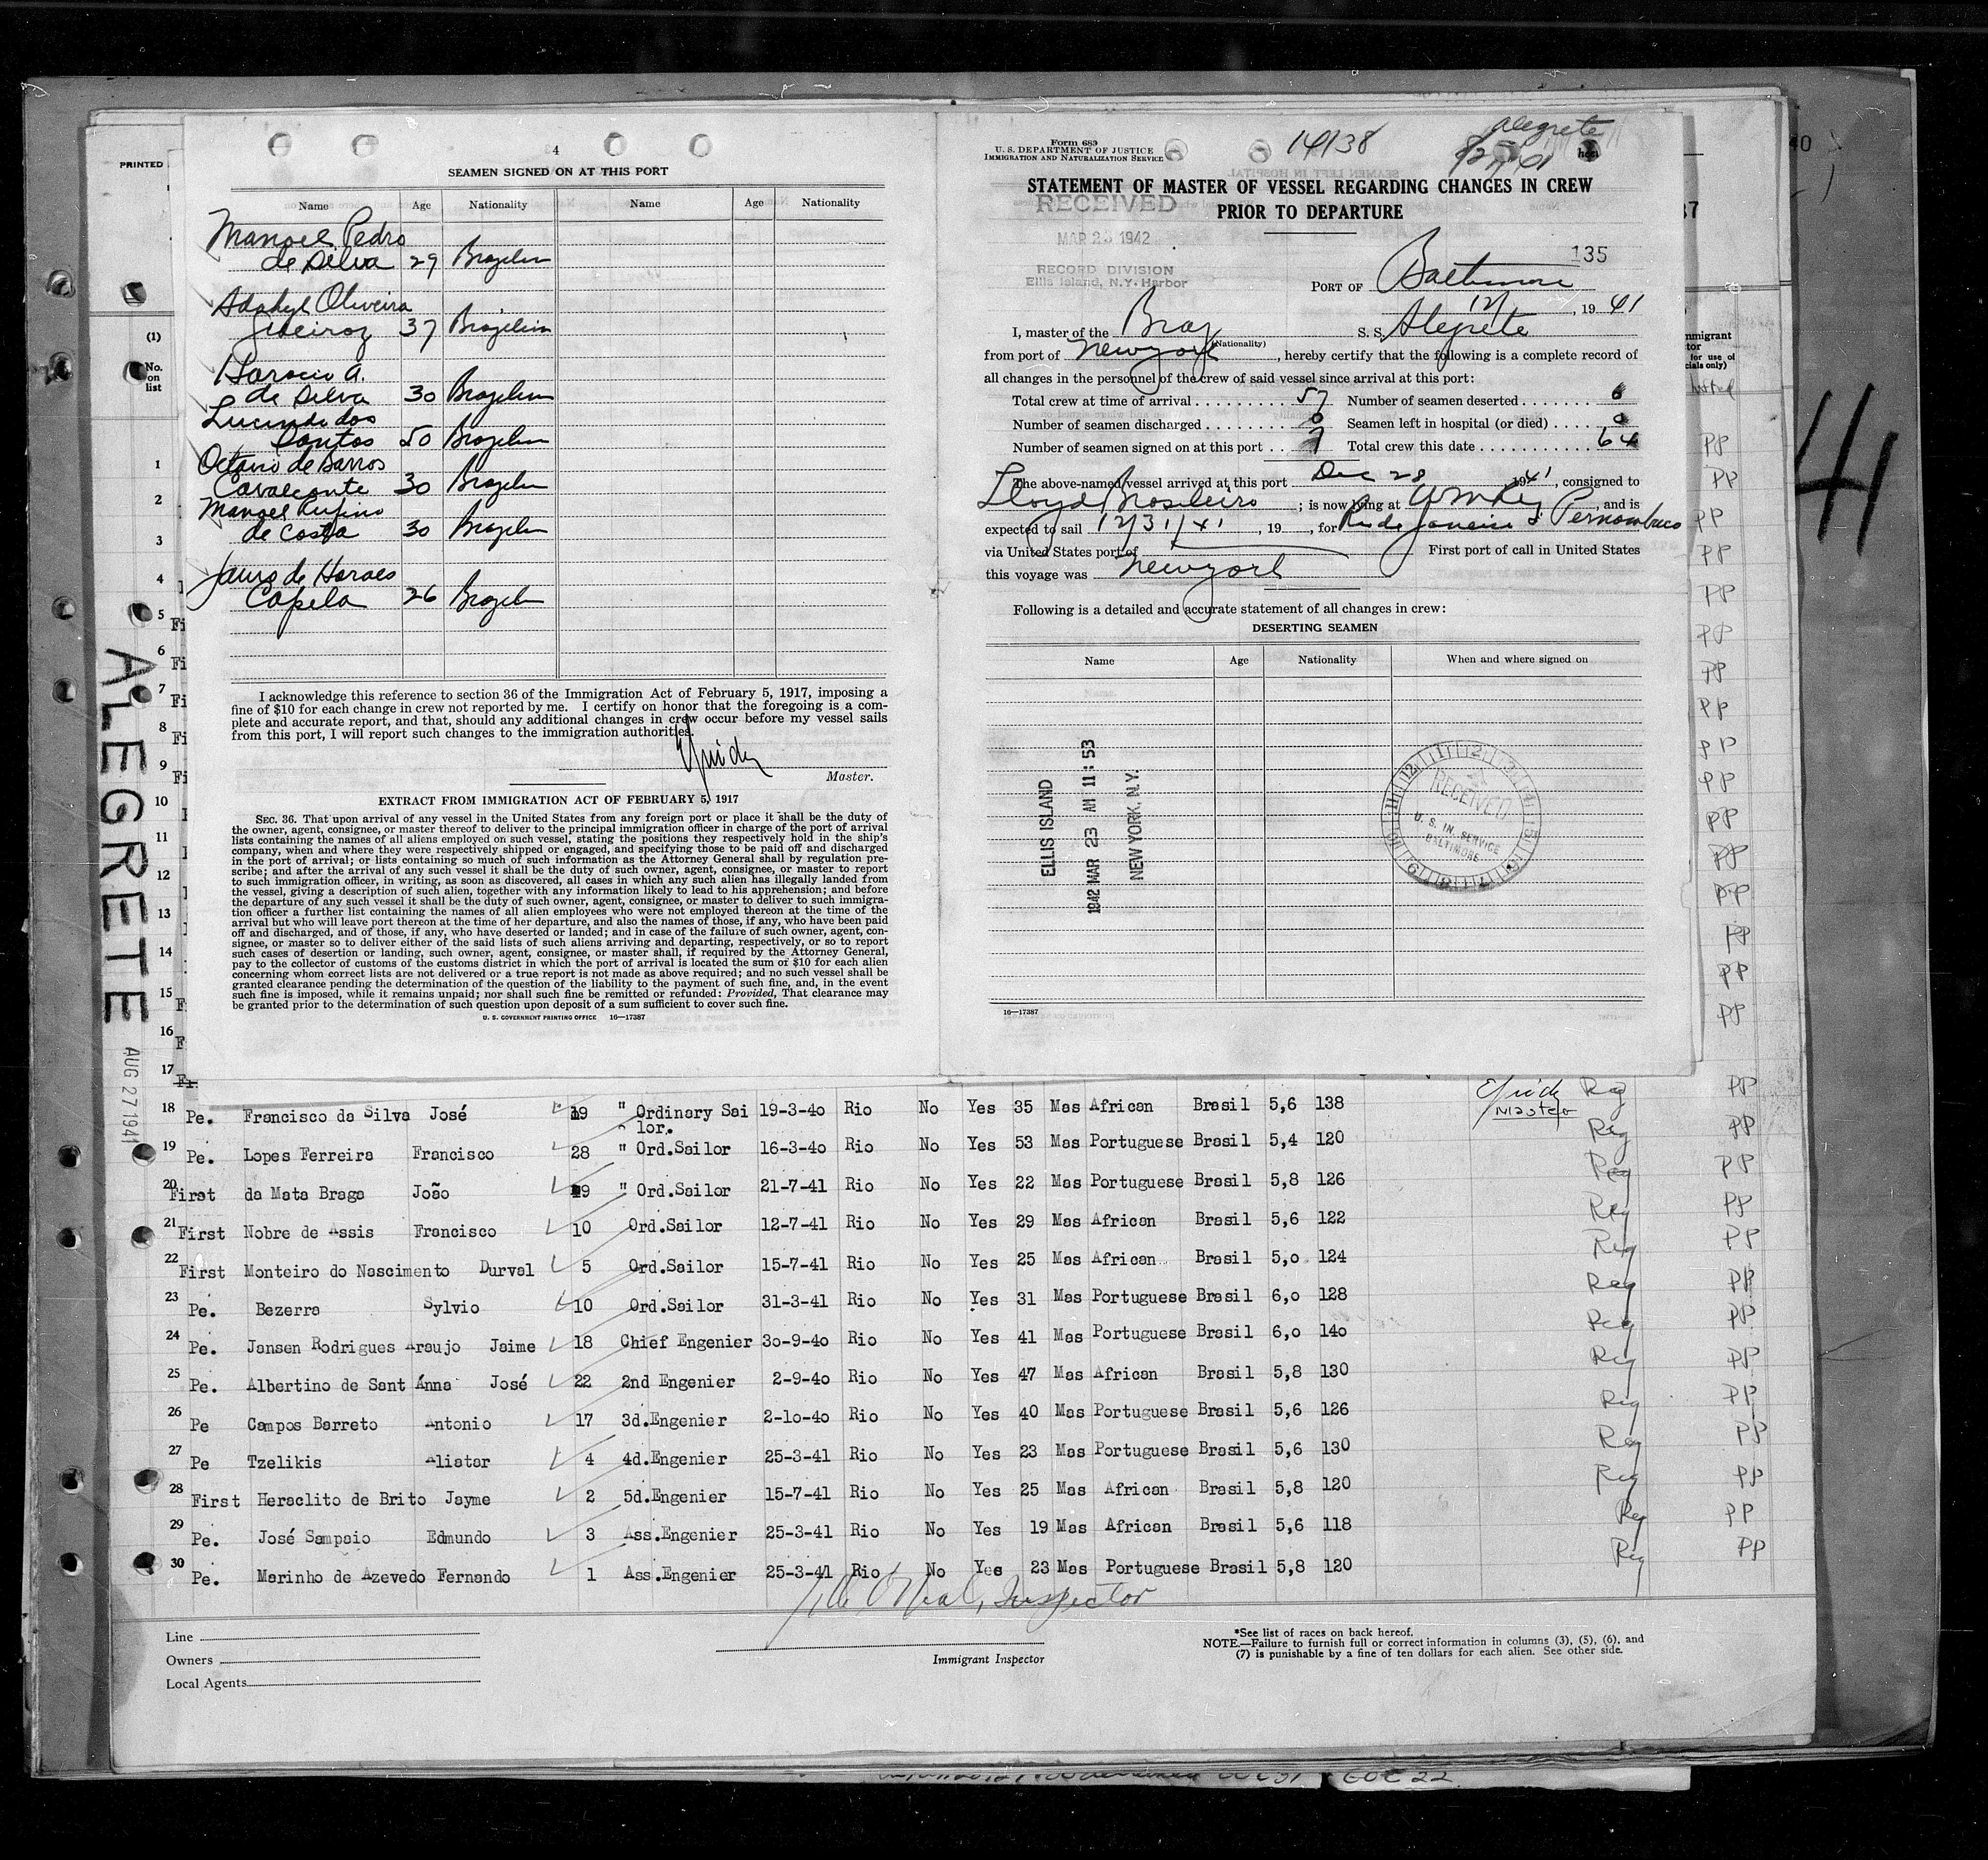 PRINTED
(1)
No.
on
list
ALEGRETE
AUG 27 1941
4
SEAMEN SIGNED ON AT THIS PORT
Name Age Nationality Name Age Nationality
Manoel Pedro
de Silva 29 Brazilian
Oliveira
37 Brazilian
Horacio A.
de Silva 30 Brazilian
Lucindo dos
Santos 50 Brazilian
Octavio de Barros
Cavalcante 30 Brazilian
Manoel Rufino
de Costa 30 Brazilian
Jauro de Horaes
Capela 26 Brazilian
I acknowledge this reference to section 36 of the Immigration Act of February 5, 1917, imposing a
fine of $10 for each change in crew not reported by me. I certify on honor that the foregoing is a com-
plete and accurate report, and that, should any additional changes in crew occur before my vessel sails
from this port, I will report such changes to the immigration authorities.
Master.
EXTRACT FROM IMMIGRATION ACT OF FEBRUARY 5, 1917
SEC. 36. That upon arrival of any vessel in the United States from any foreign port or place it shall be the duty of
the owner, agent, consignee, or master thereof to deliver to the principal immigration officer in charge of the port of arrival
lists containing the names of all aliens employed on such vessel, stating the positions they respectively hold in the ship's
company, when and where they were respectively shipped or engaged, and specifying those to be paid off and discharged
in the port of arrival; or lists containing so much of such information as the Attorney General shall by regulation pre-
scribe; and after the arrival of any such vessel it shall be the duty of such owner, agent, consignee, or master to report
to such immigration officer, in writing, as soon as discovered, all cases in which any such alien has illegally landed from
the vessel, giving a description of such alien, together with any information likely to lead to his apprehension; and before
the departure of any such vessel it shall be the duty of such owner, agent, consignee, or master to deliver to such immigra-
tion officer a further list containing the names of all alien employees who were not employed thereon at the time of the
arrival but who will leave port thereon at the time of her departure, and also the names of those, if any, who have been paid
off and discharged, and of those, if any, who have deserted or landed; and in case of the failure of such owner, agent, con-
signee, or master so to deliver either of the said lists of such aliens arriving and departing, respectively, or so to report
such cases of desertion or landing, such owner, agent, consignee, or master shall, if required by the Attorney General,
pay to the collector of customs of the customs district in which the port of arrival is located the sum of $10 for each alien
concerning whom correct lists are not delivered or a true report is not made as above required; and no such vessel shall be
granted clearance pending the determination of the question of the liability to the payment of such fine, and, in the event
such fine is imposed, while it remains unpaid; nor shall such fine be remitted or refunded: Provided, That clearance may
be granted prior to the determination of such question upon deposit of a sum sufficient to cover such fine.
U. S. GOVERNMENT PRINTING OFFICE 16—17387
Form 689
U. S. DEPARTMENT OF JUSTICE
IMMIGRATION AND NATURALIZATION SERVICE
14138
Alegrete
STATEMENT OF MASTER OF VESSEL REGARDING CHANGES IN CREW
PRIOR TO DEPARTURE
RECEIVED
MAR 23 1942
RECORD DIVISION
Ellis Island, N.Y. Harbor
135
PORT OF Baltimore
12/ , 1941
I, master of the Braz S. S. Alegrete
(Nationality)
from port of New york, hereby certify that the following is a complete record of
all changes in the personnel of the crew of said vessel since arrival at this port:
Total crew at time of arrival 57 Number of seamen deserted 0
Number of seamen discharged 0 Seamen left in hospital (or died) 0
Number of seamen signed on at this port 7 Total crew this date 64
The above-named vessel arrived at this port Dec 28 1941, consigned to
Lloyd Brasileiro ; is now lying at , and is
expected to sail 12/31/41, 19 , for Rio de Janeiro & Pernambuco
via United States port of First port of call in United States
this voyage was New york
Following is a detailed and accurate statement of all changes in crew:
DESERTING SEAMEN
Name Age Nationality When and where signed on
ELLIS ISLAND
1942 MAR 23 AM 11:53
NEW YORK, N.Y.
RECEIVED
U. S. IM. SERVICE
BALTIMORE
16—17387
41
18 Pe. Francisco da Silva José 19 " Ordinary Sai lor. 19-3-40 Rio No Yes 35 Mas African Brasil 5,6 138 Master Reg PP
19 Pe. Lopes Ferreira Francisco 28 " Ord.Sailor 16-3-40 Rio No Yes 53 Mas Portuguese Brasil 5,4 120 Reg PP
20 First da Mata Braga João 19 " Ord.Sailor 21-7-41 Rio No Yes 22 Mas Portuguese Brasil 5,8 126 Reg PP
21 First Nobre de Assis Francisco 10 Ord.Sailor 12-7-41 Rio No Yes 29 Mas African Brasil 5,6 122 Reg PP
22 First Monteiro do Nascimento Durval 5 Ord.Sailor 15-7-41 Rio No Yes 25 Mas African Brasil 5,0 124 Reg PP
23 Pe. Bezerra Sylvio 10 Ord.Sailor 31-3-41 Rio No Yes 31 Mas Portuguese Brasil 6,0 128 Reg PP
24 Pe. Jansen Rodrigues Araujo Jaime 18 Chief Engenier 30-9-40 Rio No Yes 41 Mas Portuguese Brasil 6,0 140 Reg PP
25 Pe. Albertino de Sant Ánna José 22 2nd Engenier 2-9-40 Rio No Yes 47 Mas African Brasil 5,8 130 Reg PP
26 Pe Campos Barreto Antonio 17 3d.Engenier 2-10-40 Rio No Yes 40 Mas Portuguese Brasil 5,6 126 Reg PP
27 Pe Tzelikis Aliatar 4 4d.Engenier 25-3-41 Rio No Yes 23 Mas Portuguese Brasil 5,6 130 Reg PP
28 First Heraclito de Brito Jayme 2 5d.Engenier 15-7-41 Rio No Yes 25 Mas African Brasil 5,8 120 Reg PP
29 Pe. José Sampaio Edmundo 3 Ass.Engenier 25-3-41 Rio No Yes 19 Mas African Brasil 5,6 118 Reg PP
30 Pe. Marinho de Azevedo Fernando 1 Ass.Engenier 25-3-41 Rio No Yes 23 Mas Portuguese Brasil 5,8 120 Reg PP
O'Neal, Inspector
Line
Owners
Local Agents
Immigrant Inspector
*See list of races on back hereof.
NOTE.—Failure to furnish full or correct information in columns (3), (5), (6), and
(7) is punishable by a fine of ten dollars for each alien. See other side.